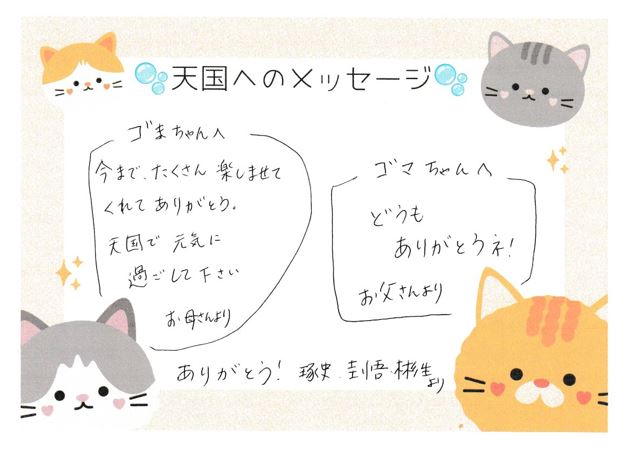 天国へのメッセージ
ゴまちゃんへ
今まで、たくさん 楽しませて
くれて ありがとう。
天国で 元気に
過ごして下さい
お母さんより
ゴマちゃんへ
どうも
ありがとうネ!
お父さんより
ありがとう! 琢史、圭悟、彬生より